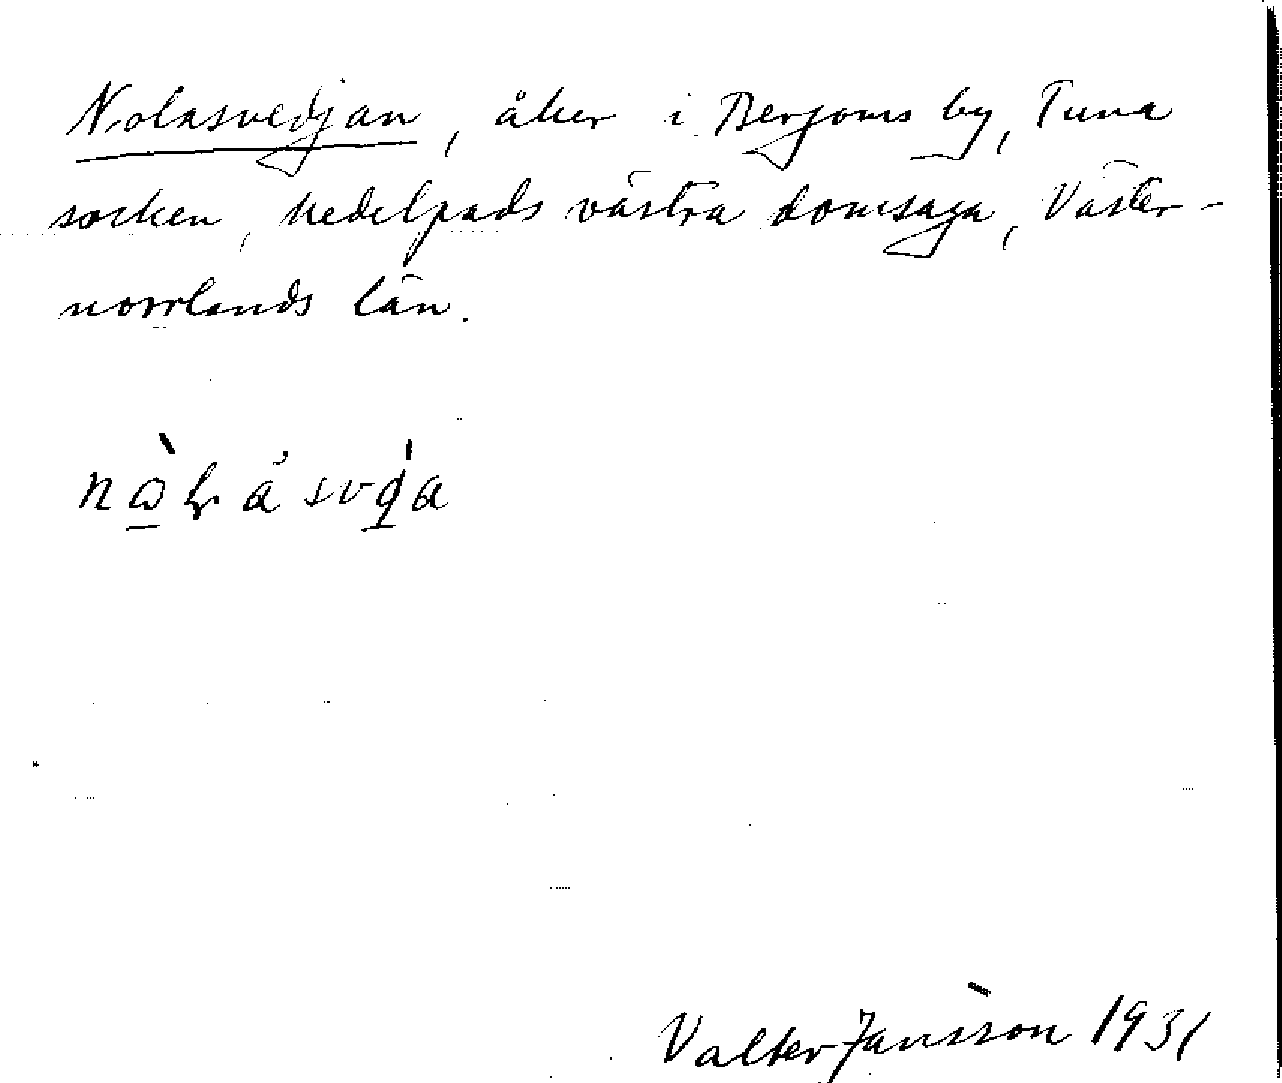 Nolasvedjan, åker i Berjoms by, Tuna
socken, Medelpads västra domsaga, Väster-
norrlands län.
Valter Jansson 1931